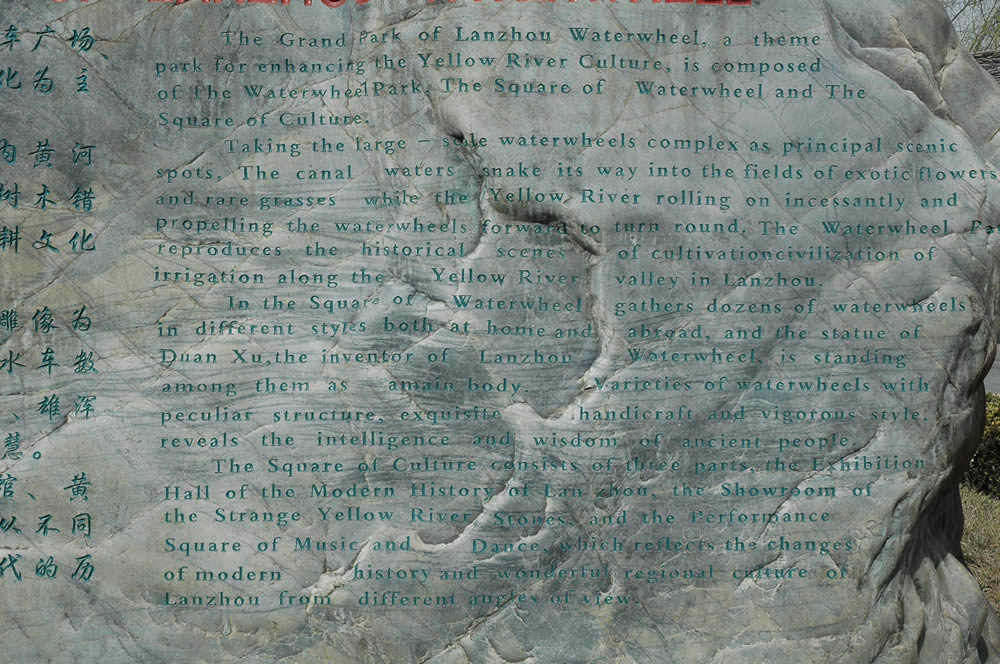 车广场、
化为主
内黄河
树木错
耕文化
雕像为
水车数
、雄浑
慧。
馆、黄
似不同
代的历
The Grand Park of Lanzhou Waterwheel, a theme
park for enhancing the Yellow River Culture, is composed
of The Waterwheel Park, The Square of Waterwheel and The
Square of Culture.
Taking the large – scale waterwheels complex as principal scenic
spots, The canal waters snake its way into the fields of exotic flowers
and rare grasses while the Yellow River rolling on incessantly and
propelling the waterwheels forward to turn round. The Waterwheel Pa
reproduces the historical scenes of cultivationcivilization of
irrigation along the Yellow River valley in Lanzhou.
In the Square of Waterwheel gathers dozens of waterwheels
in different styles both at home and abroad, and the statue of
Duan Xu,the inventor of Lanzhou Waterwheel, is standing
among them as amain body. Varieties of waterwheels with
peculiar structure, exquisite handicraft and vigorous style,
reveals the intelligence and wisdom of ancient people.
The Square of Culture consists of three parts, the Exhibition
Hall of the Modern History of Lan zhou, the Showroom of
the Strange Yellow River Stones, and the Performance
Square of Music and Dance, which reflects the changes
of modern history and wonderful regional culture of
Lanzhou from different angles of view.